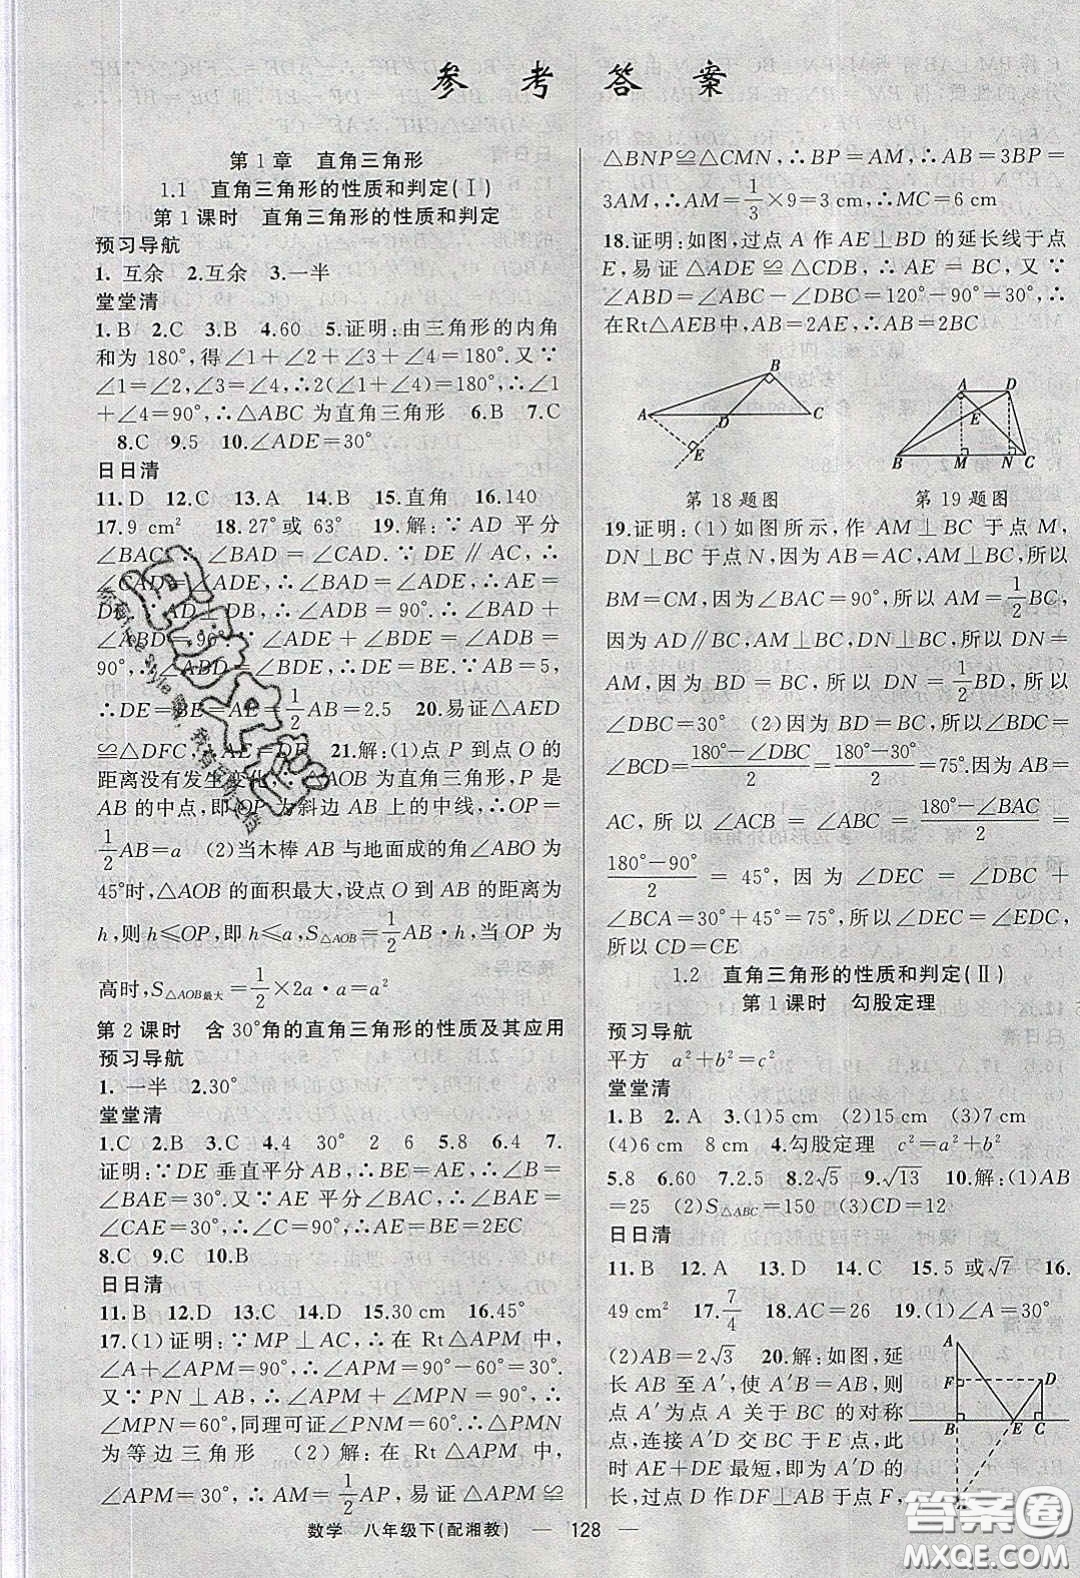 参考答案
第1章 直角三角形
1.1 直角三角形的性质和判定(Ⅰ)
第1课时 直角三角形的性质和判定
预习导航
1. 互余 2.互余 3.一半
堂堂清
1.B 2.C 3.B 4.60 5.证明:由三角形的内角
和为180°,得∠1+∠2+∠3+∠4=180°.又∵
∠1=∠2,∠3=∠4,∴2(∠1+∠4)=180°,∴∠1
+∠4=90°,∴△ABC为直角三角形 6.B 7.C
8.C 9.5 10.∠ADE=30°
日日清
11.D 12.C 13.A 14.B 15.直角 16.140
17.9 cm² 18.27°或 63° 19.解:∵AD平分
∠BAC,∴∠BAD=∠CAD.∵DE∥AC,∴
∠CAD=∠ADE,∴∠BAD=∠ADE,∴AE=
DE.∵AD⊥DB,∴∠ADB=90°.∴∠EAD+
∠ABD=90°,∠ADE+∠BDE=∠ADB=
90°,∴∠ABD=∠BDE,∴DE=BE.∵AB=5,
∴DE=BE=AE=1/2AB=2.5 20.易证△AED
≌△DFC,∴AE=DF 21.解:(1)点P到点O的
距离没有发生变化,∵△AOB为直角三角形,P是
AB的中点,即OP为斜边AB上的中线,∴OP=
1/2AB=a (2)当木棒AB与地面成的角∠ABO为
45°时,△AOB的面积最大,设点O到AB的距离为
h,则h≤OP,即h≤a,S△AOB=1/2AB·h,当OP为
高时,S△AOB最大=1/2×2a·a=a²
第2课时 含30°角的直角三角形的性质及其应用
预习导航
1. 一半 2.30°
堂堂清
1.C 2.B 3.C 4.4 30° 2 6 5.8 6.4 7.
证明:∵DE垂直平分AB,∴BE=AE,∴∠B=
∠BAE=30°.又∵AE平分∠BAC,∴∠BAE=
∠CAE=30°,∴∠C=90°,∴AE=BE=2EC
8.C 9.C 10.B
日日清
11.B 12.D 13.C 14.D 15.30 cm 16.45°
17.(1)证明:∵MP⊥AC,∴在Rt△APM中,
∠A+∠APM=90°,∴∠APM=90°-60°=30°.
又∵PN⊥AB,∴∠MPN+∠APM=90°,∴
∠MPN=60°,同理可证∠PNM=60°,∴△PMN
为等边三角形 (2)解:在Rt△APM中,
∠APM=30°,∴AM=1/2AP,易证△APM≌
△BNP≌△CMN,∴BP=AM,∴AB=3BP=
3AM,∴AM=1/3×9=3 cm,∴MC=6 cm
18.证明:如图,过点A作AE⊥BD的延长线于点
E,易证△ADE≌△CDB,∴AE=BC,又∵
∠ABD=∠ABC-∠DBC=120°-90°=30°,∴
在Rt△AEB中,AB=2AE,∴AB=2BC
A B C D E
第18题图
A B C D E M N
第19题图
19.证明:(1)如图所示,作AM⊥BC于点M,
DN⊥BC于点N,因为AB=AC,AM⊥BC,所以
BM=CM,因为∠BAC=90°,所以AM=1/2BC,
因为AD∥BC,AM⊥BC,DN⊥BC,所以DN=
AM,因为BD=BC,所以DN=1/2BD,所以
∠DBC=30° (2)因为BD=BC,所以∠BDC=
∠BCD=(180°-∠DBC)/2=(180°-30°)/2=75°.因为AB=
AC,所以∠ACB=∠ABC=(180°-∠BAC)/2=
(180°-90°)/2=45°,因为∠DEC=∠DBC+
∠BCA=30°+45°=75°,所以∠DEC=∠EDC,
所以CD=CE
1.2 直角三角形的性质和判定(Ⅱ)
第1课时 勾股定理
预习导航
平方 a²+b²=c²
堂堂清
1.B 2.A 3.(1)5 cm (2)15 cm (3)7 cm
(4)6 cm 8 cm 4.勾股定理 c²=a²+b²
5.8 6.60 7.2.5 8.2√5 9.√13 10.解:(1)AB
=25 (2)S△ABC=150 (3)CD=12
日日清
11.B 12.A 13.D 14.C 15.5或√7 16.
49 cm² 17.7/4 18.AC=26 19.(1)∠A=30°
(2)AB=2√3 20.解:如图,延
长AB至A′,使A′B=AB,则
点A′与点A关于BC的对称
点,连接A′D交BC于E点,此
时AE+DE最短,即为A′D的
长.过点D作DF⊥AB于点F,
A F D B E C
数学 八年级下(配湘教) — 128 —
答案圈
MXQE.COM